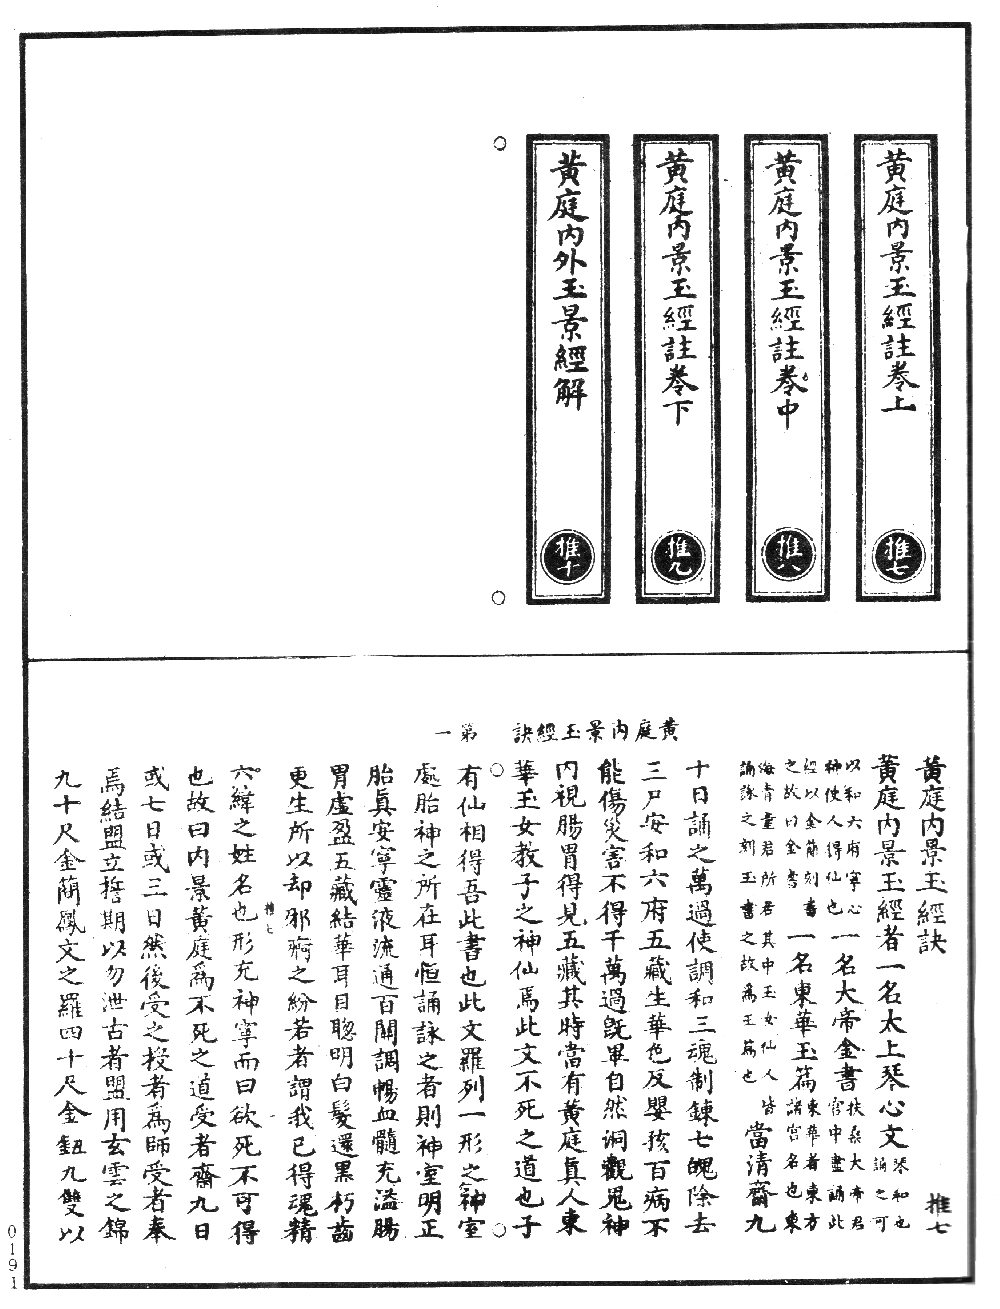 黃庭內景玉經註卷上
推七
黃庭內景玉經註卷中
推八
黃庭內景玉經註卷下
推九
黃庭內外玉景經解
推十
黃庭內景玉經訣
推七
黃庭內景玉經者一名太上琴心文琴和也誦之可
以和六府寧心神使人得仙也一名大帝金書扶桑大帝君宮中盡誦此
經以金簡刻書之故曰金書一名東華玉篇東華者東方諸宮名也東
海青童君所居其中玉女仙人皆誦詠之刻玉書之故為玉篇也當清齋九
十日誦之萬過使調和三魂制鍊七魄除去
三尸安和六府五藏生華色反嬰孩百病不
能傷災害不得干萬過既畢自然洞觀鬼神
內視腸胃得見五藏其時當有黃庭真人東
華玉女教子之神仙焉此文不死之道也子
黃庭內景玉經訣 第一
有仙相得吾此書也此文羅列一形之神室
處胎神之所在耳恒誦詠之者則神室明正
胎真安寧靈液流通百關調暢血髓充溢腸
胃虛盈五藏結華耳目聰明白髮還黑朽齒
更生所以却邪痾之紛若者謂我已得魂精
六緯之姓名也形充神寧而曰欲死不可得
推七
也故曰內景黃庭為不死之道受者齋九日
或七日或三日然後受之授者為師受者奉
焉結盟立誓期以勿泄古者盟用玄雲之錦
九十尺金簡鳳文之羅四十尺金鈕九雙以
0191